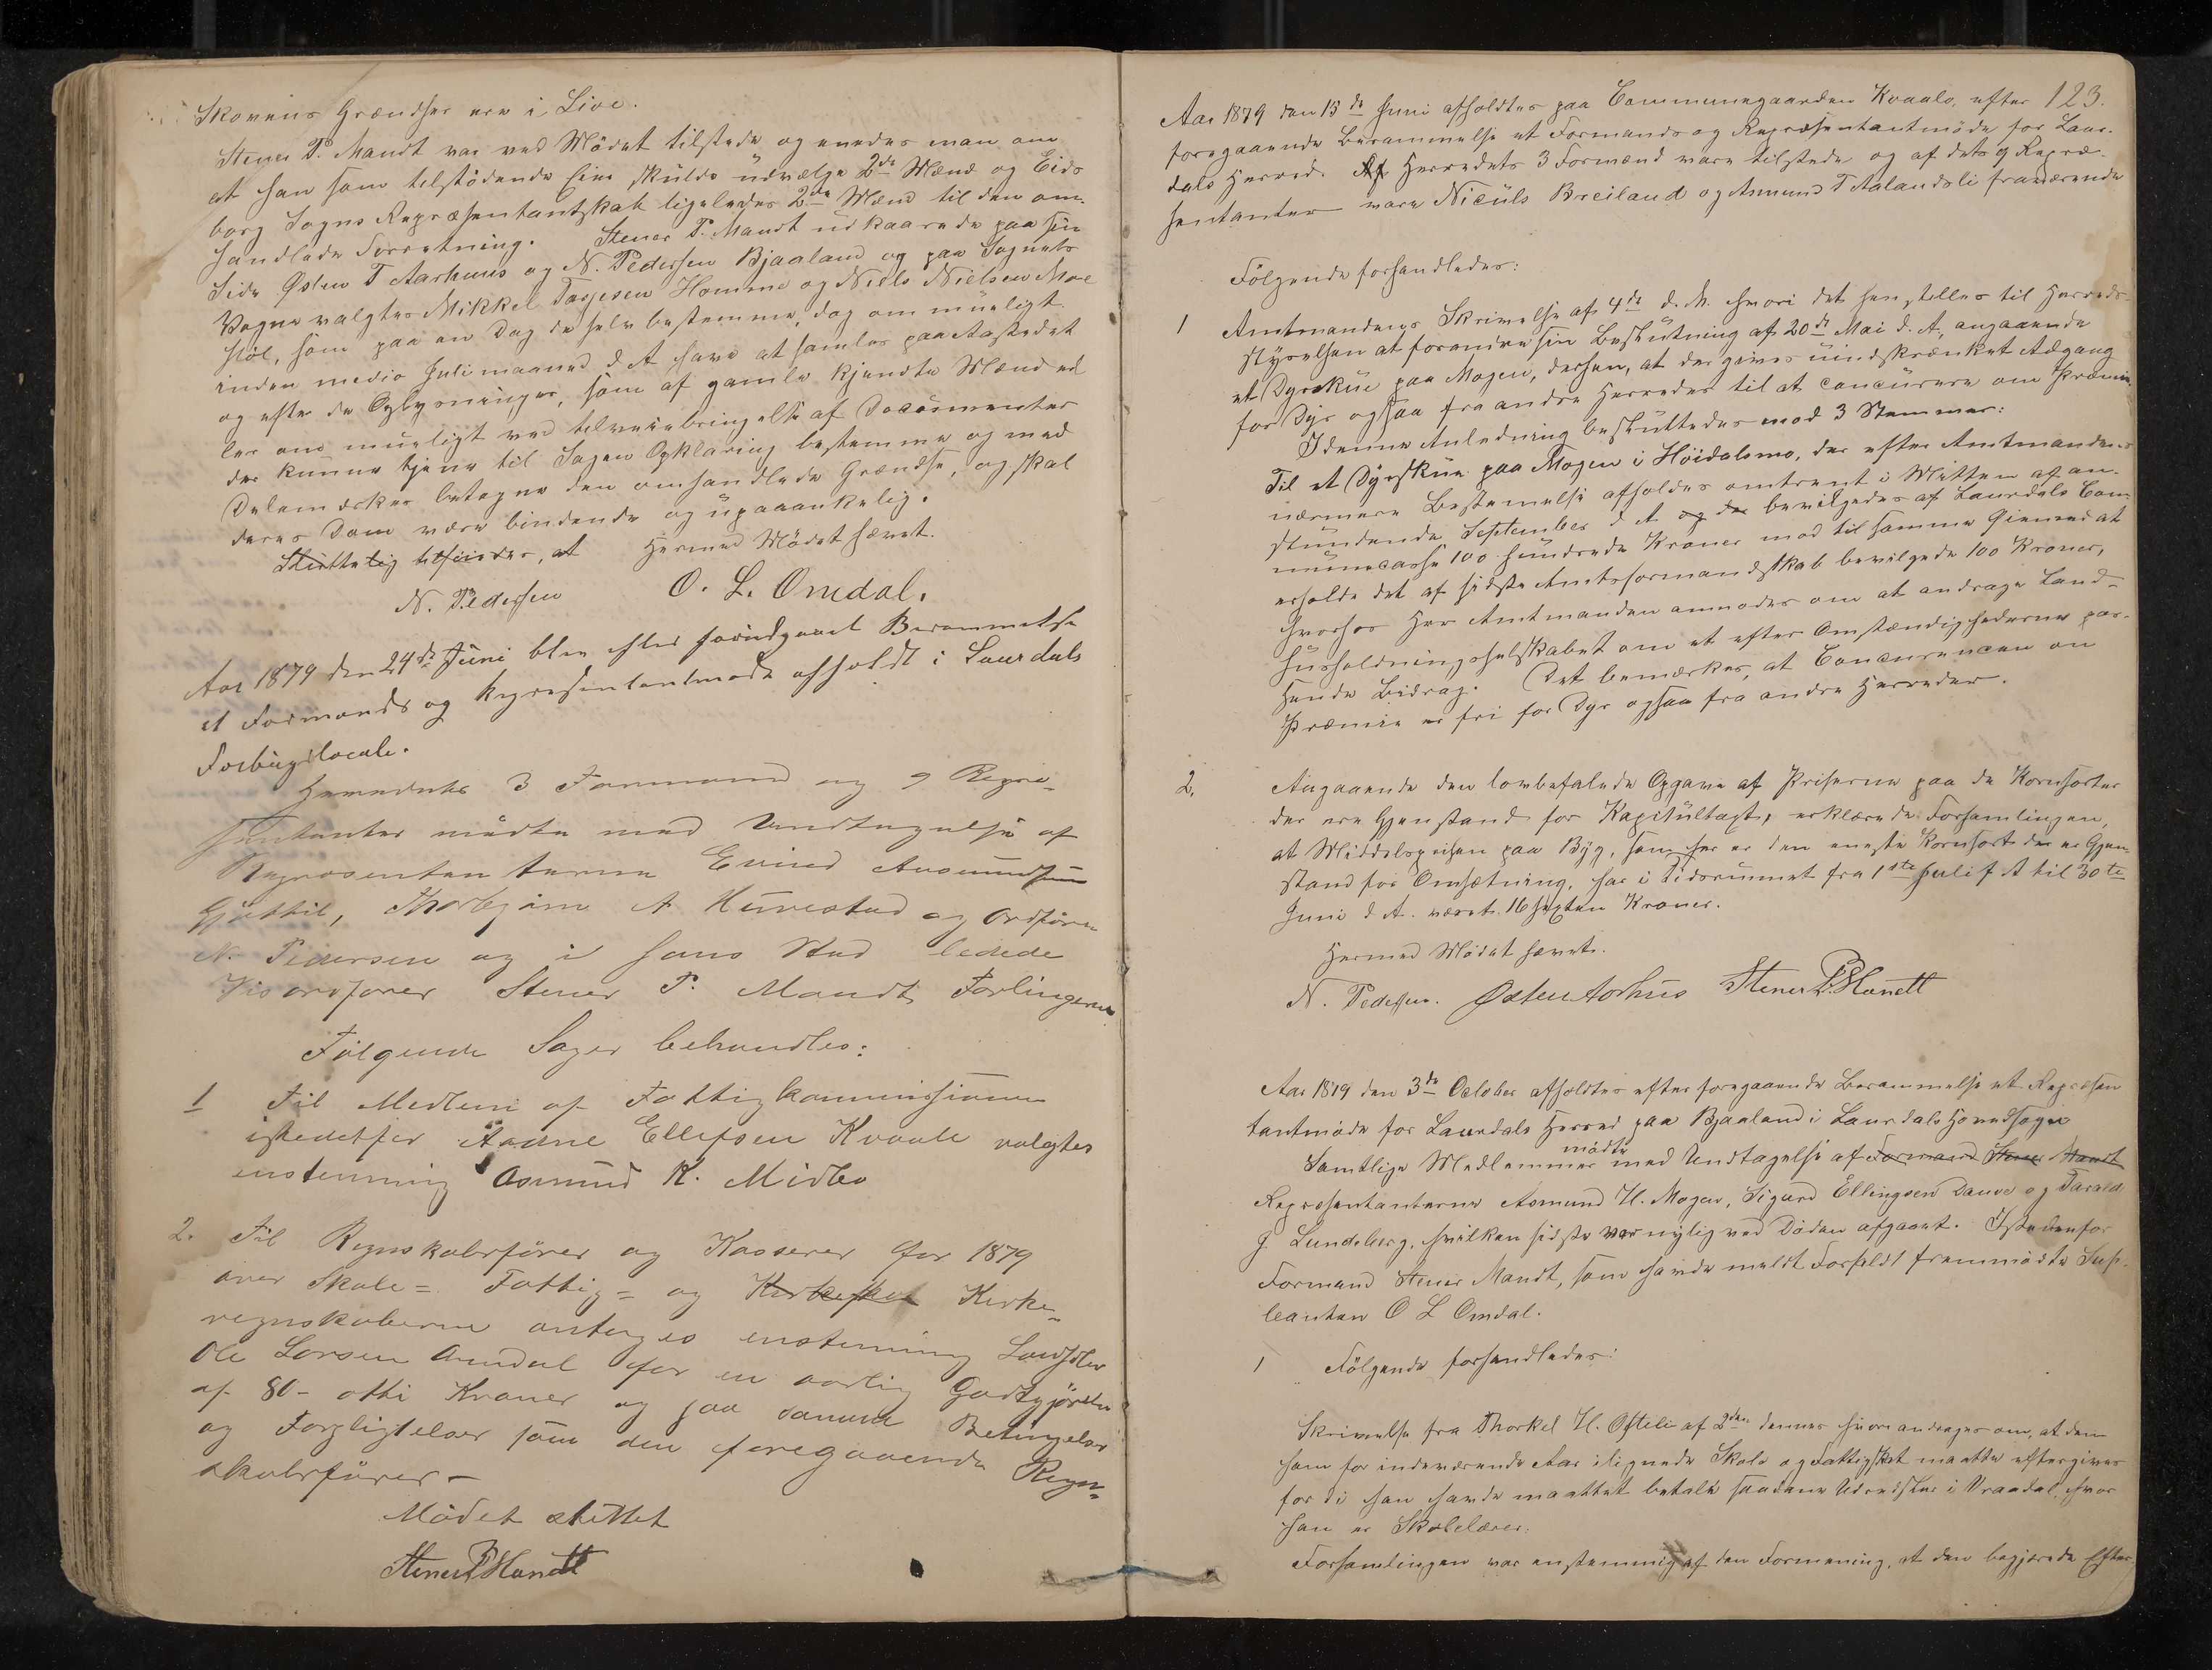 Skovens Grændser ere i Live.
Stener P. Mandt var ved Mödet tilstede og enedes man om
at han som tilstödende Eier skulde udvælge 2de Mænd og Eids
borg Sogns Repræsentantskab ligeledes 2de Mænd til den om-
handlede Forretning. Stener P. Mandt udkaarede paa sin
Side Østen T Aarhuus og N. Pedersen Bjaaland og paa Sognets
Vegne valgtes Mikkel Tarjesen Homme og Niels Nielsen Moe
som paa en Dag de selv bestemme, dog om mueligt
inden medio Juli maaned d. A. have at samles paa Aastedet
og efter de Oplysninger, som af gamle kjendte Mænd el
ler om mueligt ved tilveiebringelse af Documenter
der kunne tjene til Sagens Opklaring bestemme og med
Delemærker betegne den omhandlede Grændse, og skal
deres Dom være bindende og upaaankelig.
at Hermed Mödet hævet.
N. Pedersen O. L. Omdal.
Aar 1879 den 24de Juni blev efter forudgaaet Berammelse
et Formands og Repræsentantmøde afholdt i Laurdals
Forligslocale.
Herredets 3 Formænd og 9 Repræ-
sentanter mødte med Undtagelse af
Repræsentanterne Eivind Aasmundsen
Gjøttil, Thorbjørn A Hurvestad og Ordfører
N. Pedersen og i hans Sted ledede
Visordfører Stener P. Mandt Forlingerne
Følgende Sager behandles:
1 Til Medlem af Fattigkommissionen
istedetfor Aadne Ellefsen Kvaale valgtes
enstemmig Asmund K. Midbø
2. Til Regnskabsfører og Kasserer for 1879
over Skole= Fattig= og Kirkeskat Kirke-
regnskaberne antages enstemmig
Ole Larsen Omdal for en aarlig Godtgjørelse
af 80 - otti Kroner og paa samme Betingelser
og Forpligtelser som den foregaaende Regn=
skabsfører -
Mødet sluttet
Stener P Mandt
123.
Aar 1879 den 13de Juni afholdtes paa Communegaarden Kvaale, efter
foregaaende Berammelse et Formands og Repræsentantmöde for Laur-
dals Herred. Af Herredets 3 Formænd vare tilstede og af dets 9 Repræ-
sentanter vare Niculs Breiland og Asmund T Aalandsli fraværende
Fölgende forhandledes:
1 Amtmandens Skrivelse af 4de d. M. hvori det henstilles til Herreds-
styrelsen at forandre sin Beslutning af 20de Mai d. A., angaaende
et Dyrskue paa Mogen, derhen, at der gives uindskrænket Adgang
for Dyr ogsaa fra andre Herreder til at concurere om Præmie.
I denne Anledning besluttedes mod 3 Stemmer:
Til et Dyrskue paa Mogen i Höidalsmo, der efter Amtmandens
nærmere Bestemmelse afholdes omtrent i Midten af an-
stundende September d A og der bevilgedes af Laurdals Com-
munecasse 100 hundrede Kroner mod til samme Öiemed at
erholde det af sidste Amtsformandskab bevilgede 100 Kroner,
hvorhos Hr Amtmanden anmodes om at andrage Land-
husholdningsselskabet om et efter Omstændighederne pas-
sende Bidrag. Det bemærkes, at Concurencen om
Præmie er fri for Dyr ogsaa fra andre Herreder.
2. Angaaende den lovbefalede Opgave af Priserne paa de Kornsorter
der ere Gjenstand for Kapitültaxt, erklærede Forsamlingen,
at Middelsprisen paa Byg, som her er den eneste Kornsort der er Gjen-
stand for Omsætning, har i Tidsrummet fra 1ste Juli f A til 30te
Juni d A. været 16 sexten Kroner.
Hermed Mödet hævet.
N. Pedersen. Østen Aarhus Stener P. Mandt
Aar 1879 den 3de October afholdtes efter foregaaende Berammelse et Repræsen
tantmöde for Laurdals Herred paa Bjaaland i Laurdals Hovedsogn
Samtlige Medlemmer mödte med Undtagelse af Formand Stener Mandt
Repræsentanterne Asmund H. Mogen, Sigurd Ellingsen Dauve og Tarald
G Lundeberg, hvilken sidste var nylig ved Döden afgaaet. Istedenfor
Formand Stener Mandt, som havde meldt Forfald fremmödte Sup-
leanten O L Omdal.
1 Fölgende forhandledes:
Skrivelse fra Thorkel H. Ofteli af 2den dennes hvori andrages om, at den
ham for indeværende Aar ilignede Skole og Fattigskat maatte eftergives
fordi han havde maattet betale saadanne Udredsler i Vraadal, hvor
han er Skolelærer.
Forsamlingen var enstemmig af den Formening, at den begjærede Efter-